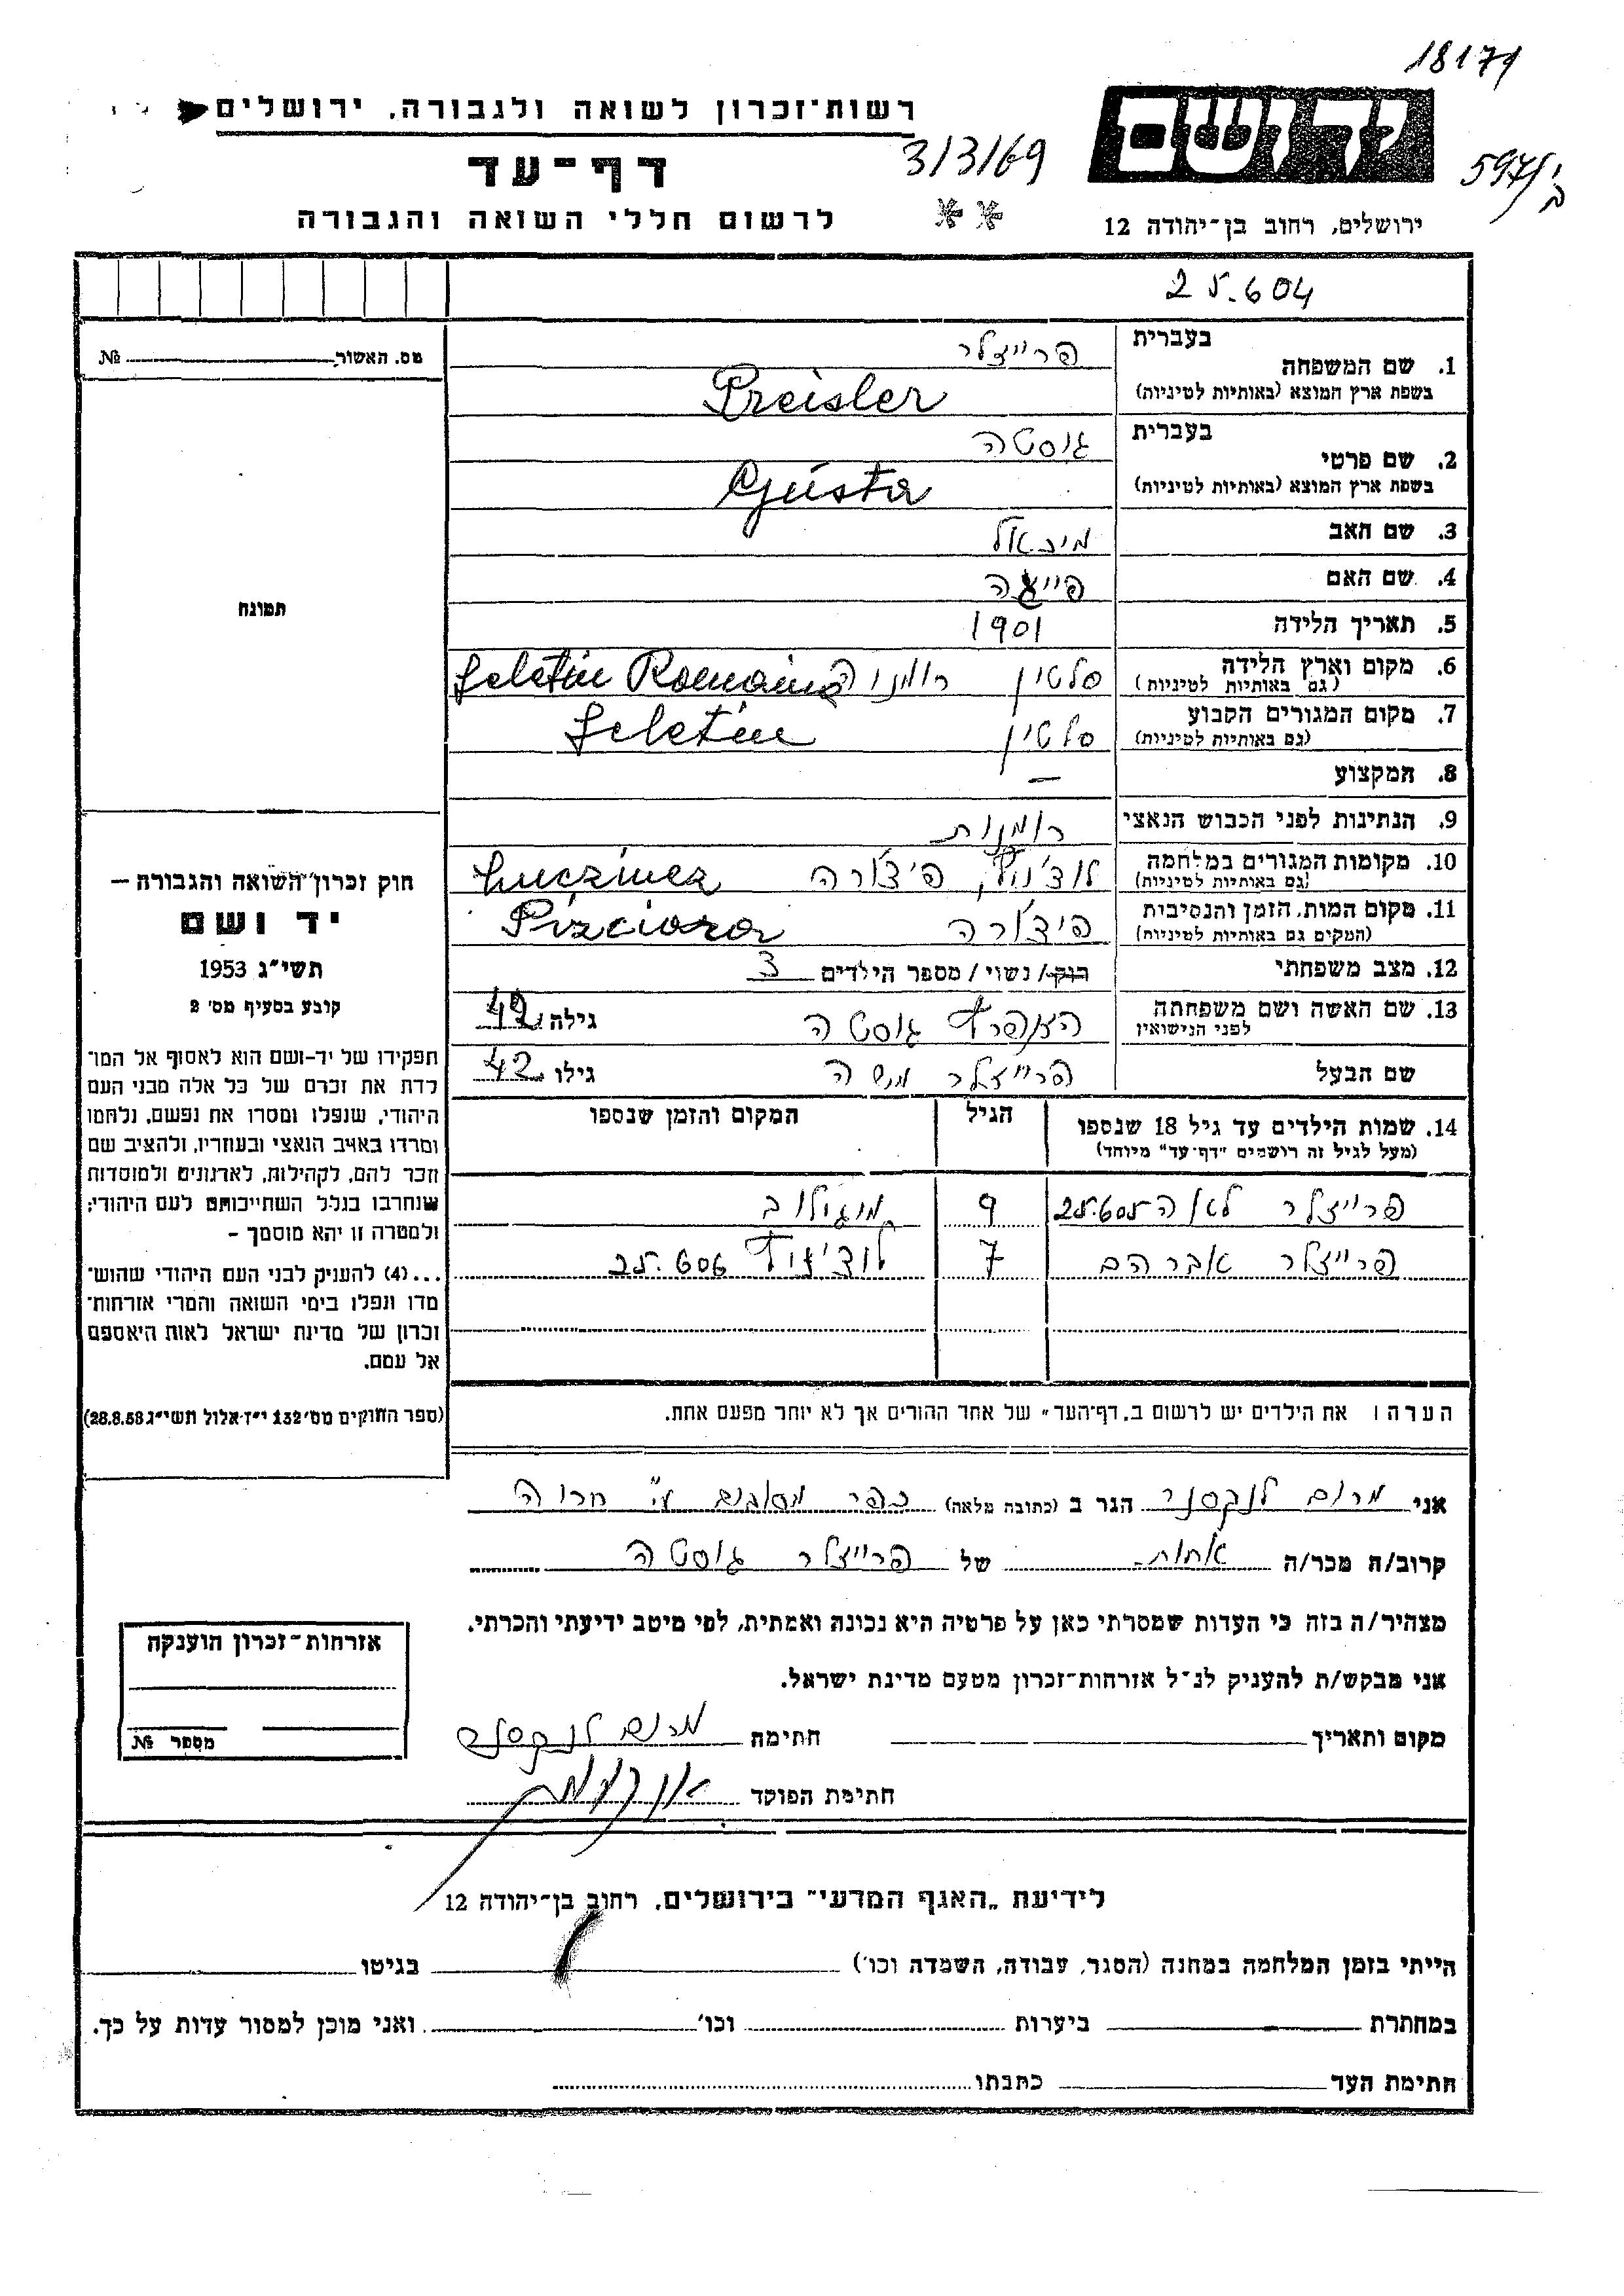 18171
רשות־זכרון לשואה ולגבורה, ירושלים
יד ושם
597/
3/3/69
דף־עד
לרשום חללי השואה והגבורה
ירושלים, רחוב בן־יהודה 12
25.604
מס. תאשור № 
1. שם המשפחה
בעברית פרייזלר
בשפת ארץ המוצא (באותיות לטיניות) Preisler
2. שם פרטי
בעברית גוסטה
בשפת ארץ המוצא (באותיות לטיניות) Gusta
3. שם האב מיכאל
4. שם האם
5. תאריך הלידה 1901
6. מקום וארץ הלידה סלטין רומניה Seletin Romania
(גם באותיות לטיניות)
7. מקום המגורים הקבוע סלטין Seletin
(גם באותיות לטיניות)
8. המקצוע —
9. הנתינות לפני הכבוש הנאצי רומנית
10. מקומות המגורים במלחמה פיצ'ורה Lucziniez
(גם באותיות לטיניות)
11. מקום המות, הזמן והנסיבות פיצ'ורה Piziciora
(המקום גם באותיות לטיניות)
12. מצב משפחתי רוק / נשוי / מספר הילדים 3
13. שם האשה ושם משפחתה גוסטה גילה 42
לפני הנישואין
שם הבעל פרייזלר משה גילו 42
14. שמות הילדים עד גיל 18 שנספו הגיל המקום והזמן שנספו
(מעל לגיל זה רושמים "דף־עד" מיוחד)
פרייזלר לאה 25.605 9 מוגילוב
פרייזלר אברהם 7 25.606
הערה: את הילדים יש לרשום ב„דף־העד" של אחד ההורים אך לא יותר מפעם אחת.
תמונה
חוק זכרון השואה והגבורה —
יד ושם
תשי"ג 1953
קובע בסעיף מס' 2
תפקידו של יד-ושם הוא לאסוף אל המו־
לדת את זכרם של כל אלה מבני העם
היהודי, שנפלו ומסרו את נפשם, נלחמו
ומרדו באויב הנאצי ובעוזריו, ולהציב שם
וזכר להם, לקהילות, לארגונים ולמוסדות
שנחרבו בגלל השתייכותם לעם היהודי;
ולמטרה זו יהא מוסמך –
...(4) להעניק לבני העם היהודי שהוש־
מדו ונפלו בימי השואה והמרי אזרחות־
זכרון של מדינת ישראל לאות היאספם
אל עמם.
(ספר החוקים מס' 132 י"ז אלול תשי"ג 28.8.53)
אני מרום לנקסנר הגר ב (כתובה מלאה) כפר
קרוב/ה מכר/ה אחות של פרייזלר גוסטה
מצהיר/ה בזה כי העדות שמסרתי כאן על פרטיה היא נכונה ואמתית, לפי מיטב ידיעתי והכרתי.
אני מבקש/ת להעניק לנ"ל אזרחות־זכרון מטעם מדינת ישראל.
מקום ותאריך חתימה מרום לנקסנר
חתימת הפוקד
אזרחות־זכרון הוענקה
מספר №
לידיעת „האגף המדעי" בירושלים, רחוב בן־יהודה 12
הייתי בזמן המלחמה במחנה (הסגר, עבודה, השמדה וכו') בגיטו
במחתרת ביערות וכו' ואני מוכן למסור עדות על כך.
חתימת העד כתבתו